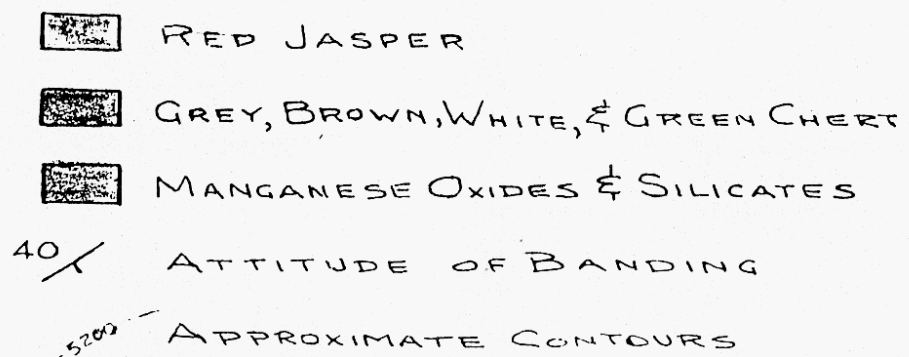 RED JASPER
GREY, BROWN, WHITE, & GREEN CHERT
MANGANESE OXIDES & SILICATES
40 ATTITUDE OF BANDING
5200 APPROXIMATE CONTOURS